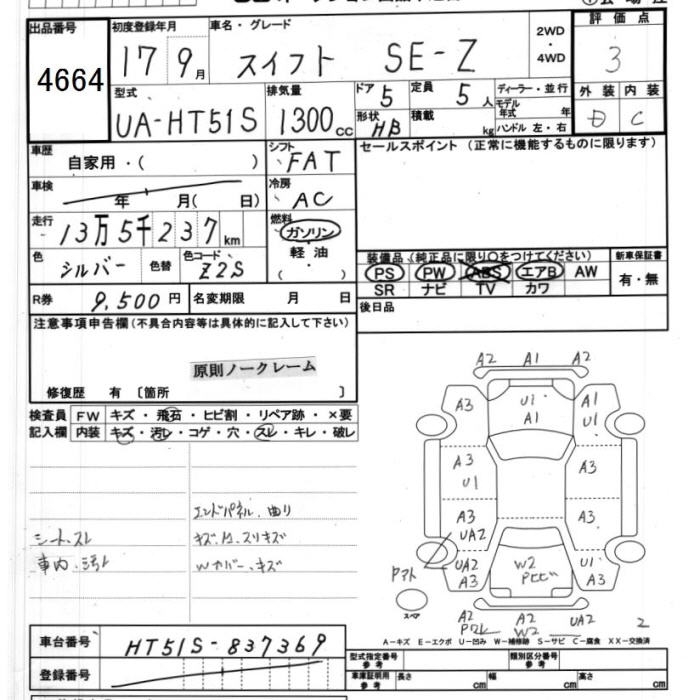 出品番号
4664
初度登録年月
17 9月
車名・グレード
スイフト SE-Z
2WD
・
4WD
評価点
3
型式
UA-HT51S
排気量
1300cc
ドア 5
定員 5人
ディーラー・並行
モデル年式 年
形状 HB
積載 kg
ハンドル 左・右
外装 内装
D C
車歴
自家用・( )
シフト
FAT
セールスポイント (正常に機能するものに限ります)
車検
年 月( 日)
冷房
AC
走行
13万5千237km
燃料
ガソリン
・
軽油
( )
色
シルバー
色替
色コード
Z2S
装備品 (純正品に限り○をつけてください)
新車保証書
PS PW ABS エアB AW
有・無
SR ナビ TV カワ
R券 9,500円
名変期限 月 日
後日品
注意事項申告欄(不具合内容等は具体的に記入して下さい)
原則ノークレーム
修復歴 有 〔箇所 〕
検査員
記入欄
FW キズ・飛石・ヒビ割・リペア跡・×要
内装 キズ・汚レ・コゲ・穴・スレ・キレ・破レ
シート・スレ
車内・汚レ
エンドパネル・曲り
キズ・A・スリキズ
Wカバー・キズ
A2 A1 A2
A3 U1 A1
A1 U1
A3 U1
A3
A3 UA2
A3
UA2 A3
W2
U1 A3
スペア
A2 A2 UA2 2
W2
A-キズ E-エクボ U-凹み W-補修跡 S-サビ C-腐食 XX-交換済
車台番号
HT51S-837369
登録番号
型式指定番号
参考
類別区分番号
参考
車庫証明用
参考
長さ cm
幅 cm
高さ cm